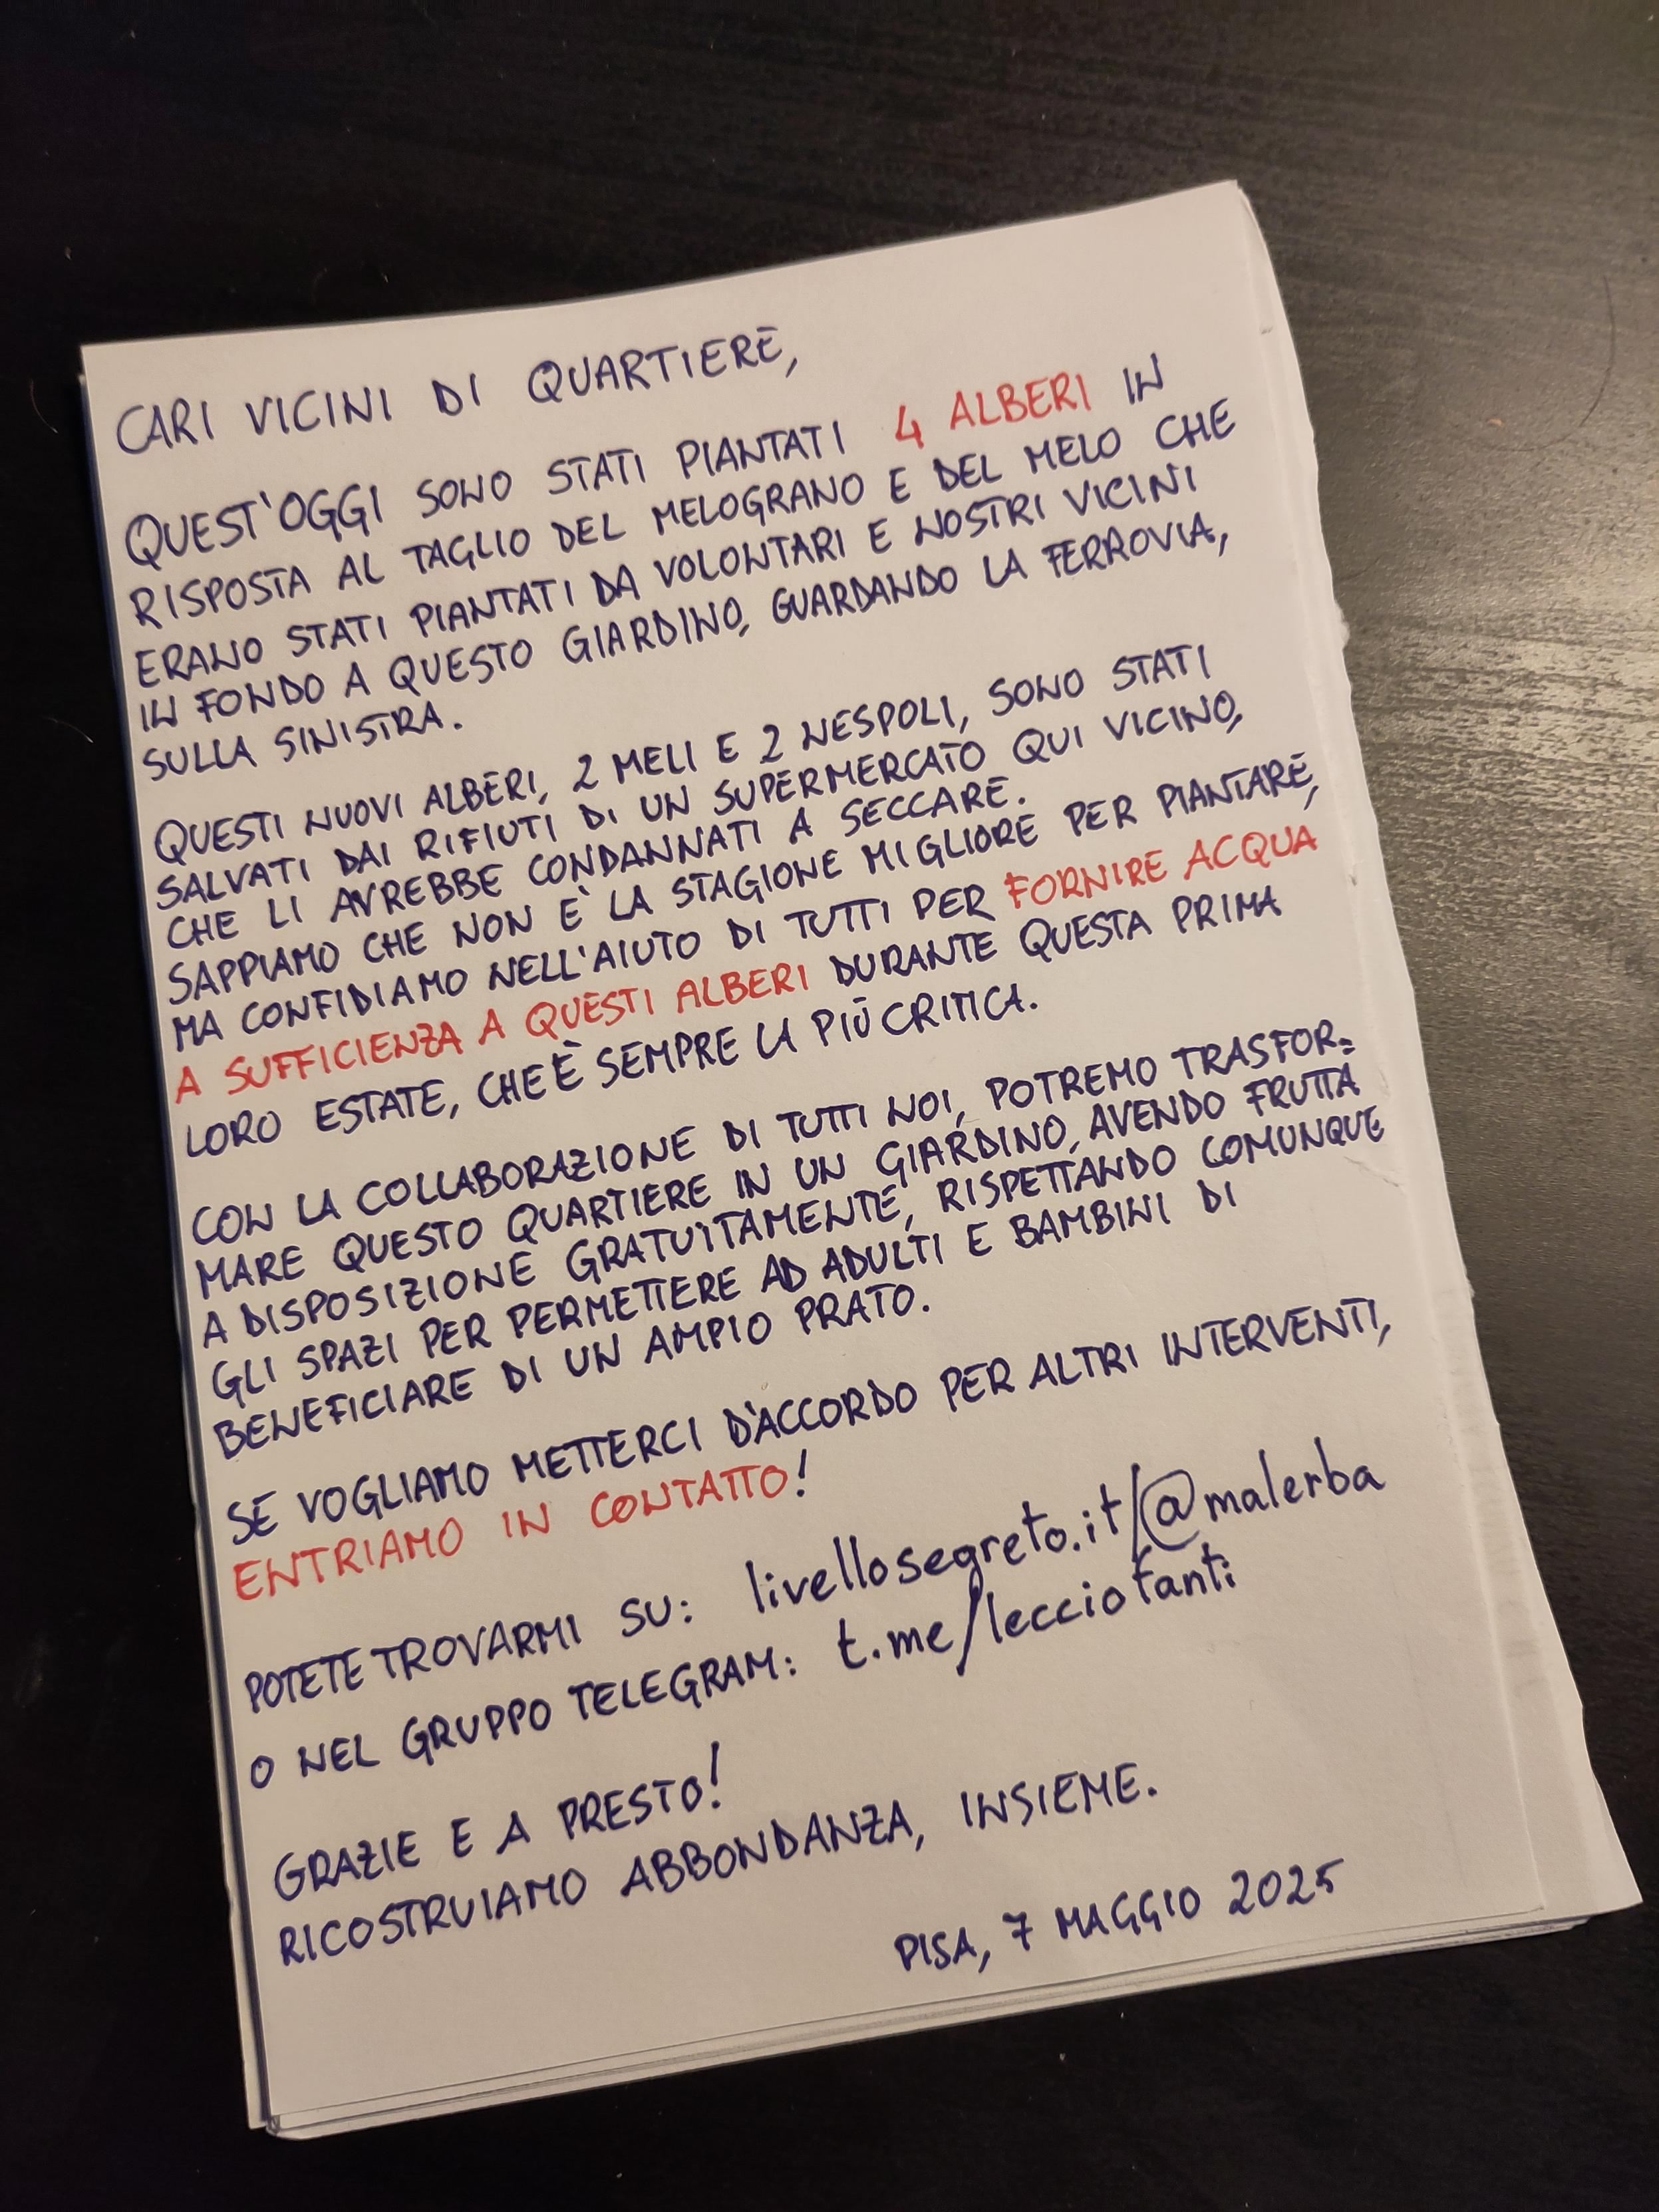 CARI VICINI DI QUARTIERE,
QUEST'OGGI SONO STATI PIANTATI 4 ALBERI IN
RISPOSTA AL TAGLIO DEL MELOGRANO E DEL MELO CHE
ERANO STATI PIANTATI DA VOLONTARI E NOSTRI VICINI
IN FONDO A QUESTO GIARDINO, GUARDANDO LA FERROVIA,
SULLA SINISTRA.
QUESTI NUOVI ALBERI, 2 MELI E 2 NESPOLI, SONO STATI
SALVATI DAI RIFIUTI DI UN SUPERMERCATO QUI VICINO,
CHE LI AVREBBE CONDANNATI A SECCARE.
SAPPIAMO CHE NON È LA STAGIONE MIGLIORE PER PIANTARE,
MA CONFIDIAMO NELL'AIUTO DI TUTTI PER FORNIRE ACQUA
A SUFFICIENZA A QUESTI ALBERI DURANTE QUESTA PRIMA
LORO ESTATE, CHE È SEMPRE LA PIÙ CRITICA.
CON LA COLLABORAZIONE DI TUTTI NOI, POTREMO TRASFOR=
MARE QUESTO QUARTIERE IN UN GIARDINO, AVENDO FRUTTA
A DISPOSIZIONE GRATUITAMENTE, RISPETTANDO COMUNQUE
GLI SPAZI PER PERMETTERE AD ADULTI E BAMBINI DI
BENEFICIARE DI UN AMPIO PRATO.
SE VOGLIAMO METTERCI D'ACCORDO PER ALTRI INTERVENTI,
ENTRIAMO IN CONTATTO!
POTETE TROVARMI SU: livellosegreto.it/@malerba
O NEL GRUPPO TELEGRAM: t.me/lecciofanti
GRAZIE E A PRESTO!
RICOSTRUIAMO ABBONDANZA, INSIEME.
PISA, 7 MAGGIO 2025